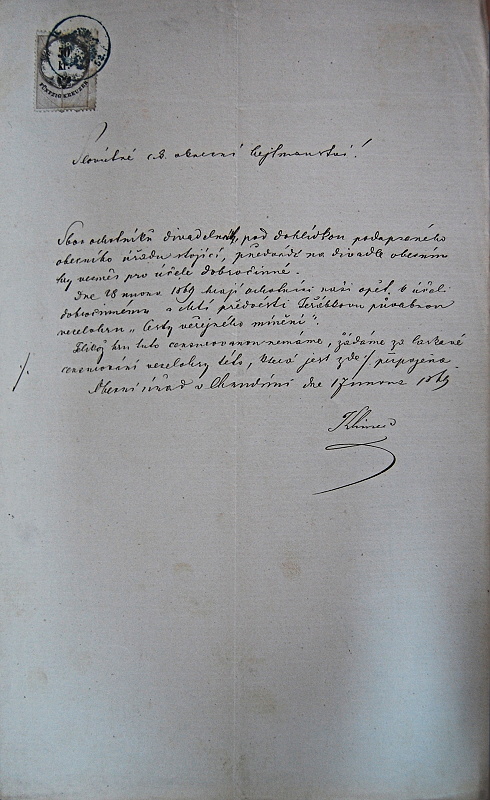 50
FÜNFZIG KREUZER
Slovútné c.k. okresní hejtmanství!
Sbor ochotníků divadelních, pod dohlídkou podepsaného
obecního úřadu stojící, předvádí na divadle obecním
hry vesměs pro účele dobročinné.
Dne 28 února 1869 hrají ochotníci naši opět k účeli
dobročinnému a chtí předvésti Jeřábkovu původnou
veselohru „Cesty veřejného mínění“.
hru tuto censurovanou nemáme, žádáme za laskavé
censurování veselohry této, která jest zde ⁒ připojena.
Obecní úřad v Chrudimi dne 17 února 1869
Klimeš